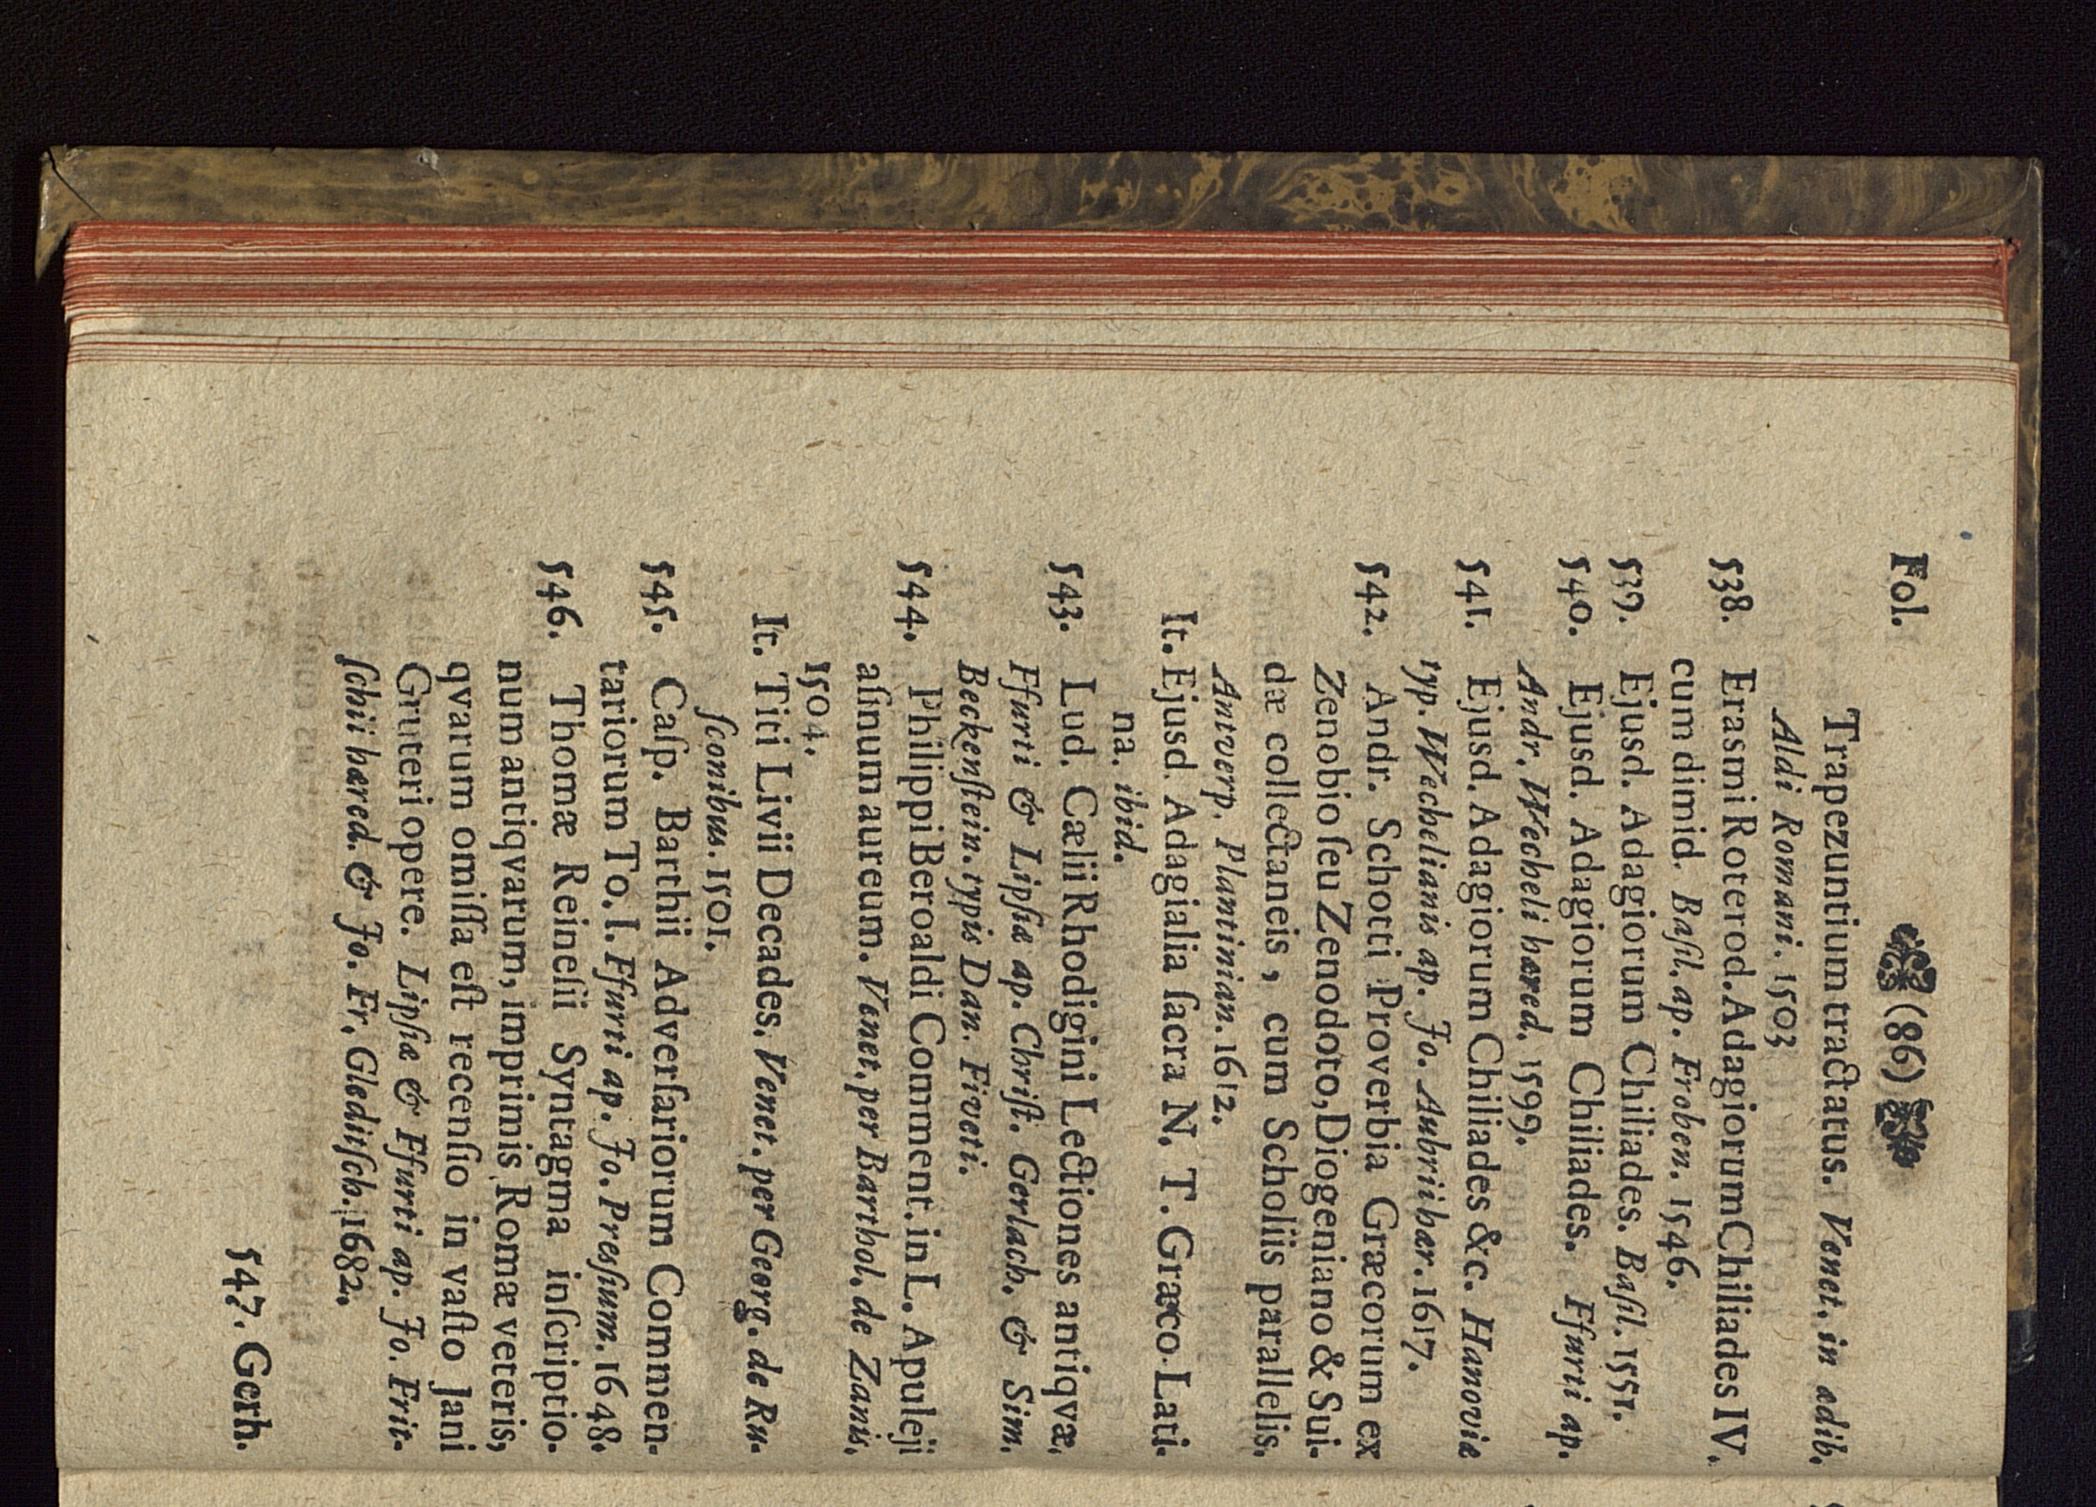 Fol. (86)
Trapezuntium tractatus. Venet. in ædib.
Aldi Romani. 1503
538. Erasmi Roterod. Adagiorum Chiliades IV.
cum dimid. Baſil. ap. Froben. 1546.
539. Ejusd. Adagiorum Chiliades. Baſil. 1551.
540. Ejusd. Adagiorum Chiliades. Ffurti ap.
Andr. Wecheli hæred. 1599.
541. Ejusd. Adagiorum Chiliades &c. Hanoviæ
typ. Wechelianis ap. Jo. Aubrii hær. 1617.
542. Andr. Schotti Proverbia Græcorum ex
Zenobio ſeu Zenodoto, Diogeniano & Sui-
dæ collectaneis, cum Scholiis parallelis.
Antverp. Plantinian. 1612.
It. Ejusd. Adagialia ſacra N. T. Græco-Lati-
na. ibid.
543. Lud. Cælii Rhodigini Lectiones antiqvæ.
Ffurti & Lipſiæ ap. Chriſt. Gerlach. & Sim.
Beckenſtein. typis Dan. Fiveti.
544. Philippi Beroaldi Comment. in L. Apuleji
aſinum aureum. Venet. per Barthol. de Zanis.
1504.
It. Titi Livii Decades. Venet. per Georg. de Ru-
ſconibus. 1501.
545. Caſp. Barthii Adverſariorum Commen-
tariorum To. I. Ffurti ap. Jo. Presſium. 1648.
546. Thomæ Reineſii Syntagma inſcriptio-
num antiqvarum, imprimis Romæ veteris,
qvarum omiſſa eſt recenſio in vaſto Jani
Gruteri opere. Lipſiæ & Ffurti ap. Jo. Frit-
ſchii hæred. & Jo. Fr. Gleditſch. 1682.
547. Gerh.